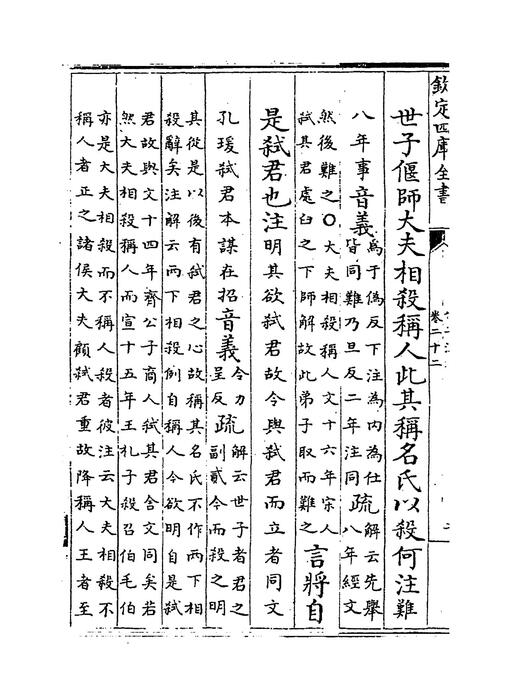 欽定四庫全書
卷二十二
世子偃師大夫相殺稱人此其稱名氏以殺何注難
八年事音義爲于偽反下注為内為仕
皆同難乃旦反二年注同疏解云先舉
八年經文
然後難之〇大夫相殺稱人文十六年宋人
弑其君處臼之下師解故此弟子取而難之言將自
是弑君也注明其欲弑君故令與弑君而立者同文
孔瑗弑君本謀在招音義令力
呈反疏解云世子者君之
副貳今而殺之明
其從是以後有弑君之心故稱其名氏不作兩下相
殺辭矣注解云兩下相殺例自稱人今欲明自是弑
君故與文十四年齊公子商人弑其君舍文同矣若
然大夫相殺稱人而宣十五年王札子殺召伯毛伯
亦是大夫相殺而不稱人殺者彼注云大夫相殺不
稱人者正之諸侯大夫顧弑君重故降稱人王者至